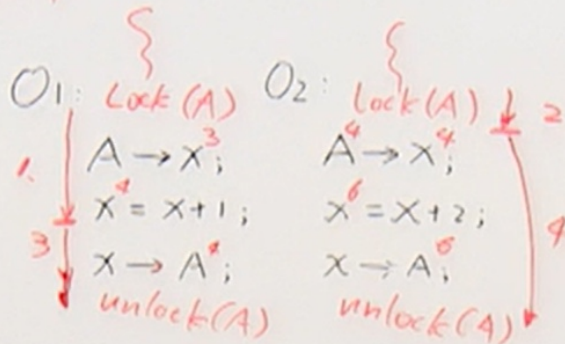 O1: Lock(A)
A → X³;
X⁴ = X+1;
X → A⁴;
unlock(A)
1.
3
O2: lock(A)
A⁴ → X⁴;
X⁶ = X+2;
X → A⁶;
unlock(A)
2
4